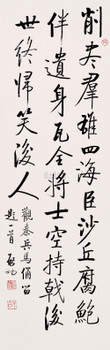 削尽羣雄四海臣沙丘腐鮑
伴遺身瓦全將士空持戟後
世終歸笑後人
觀秦兵馬俑留
題一首 啟功